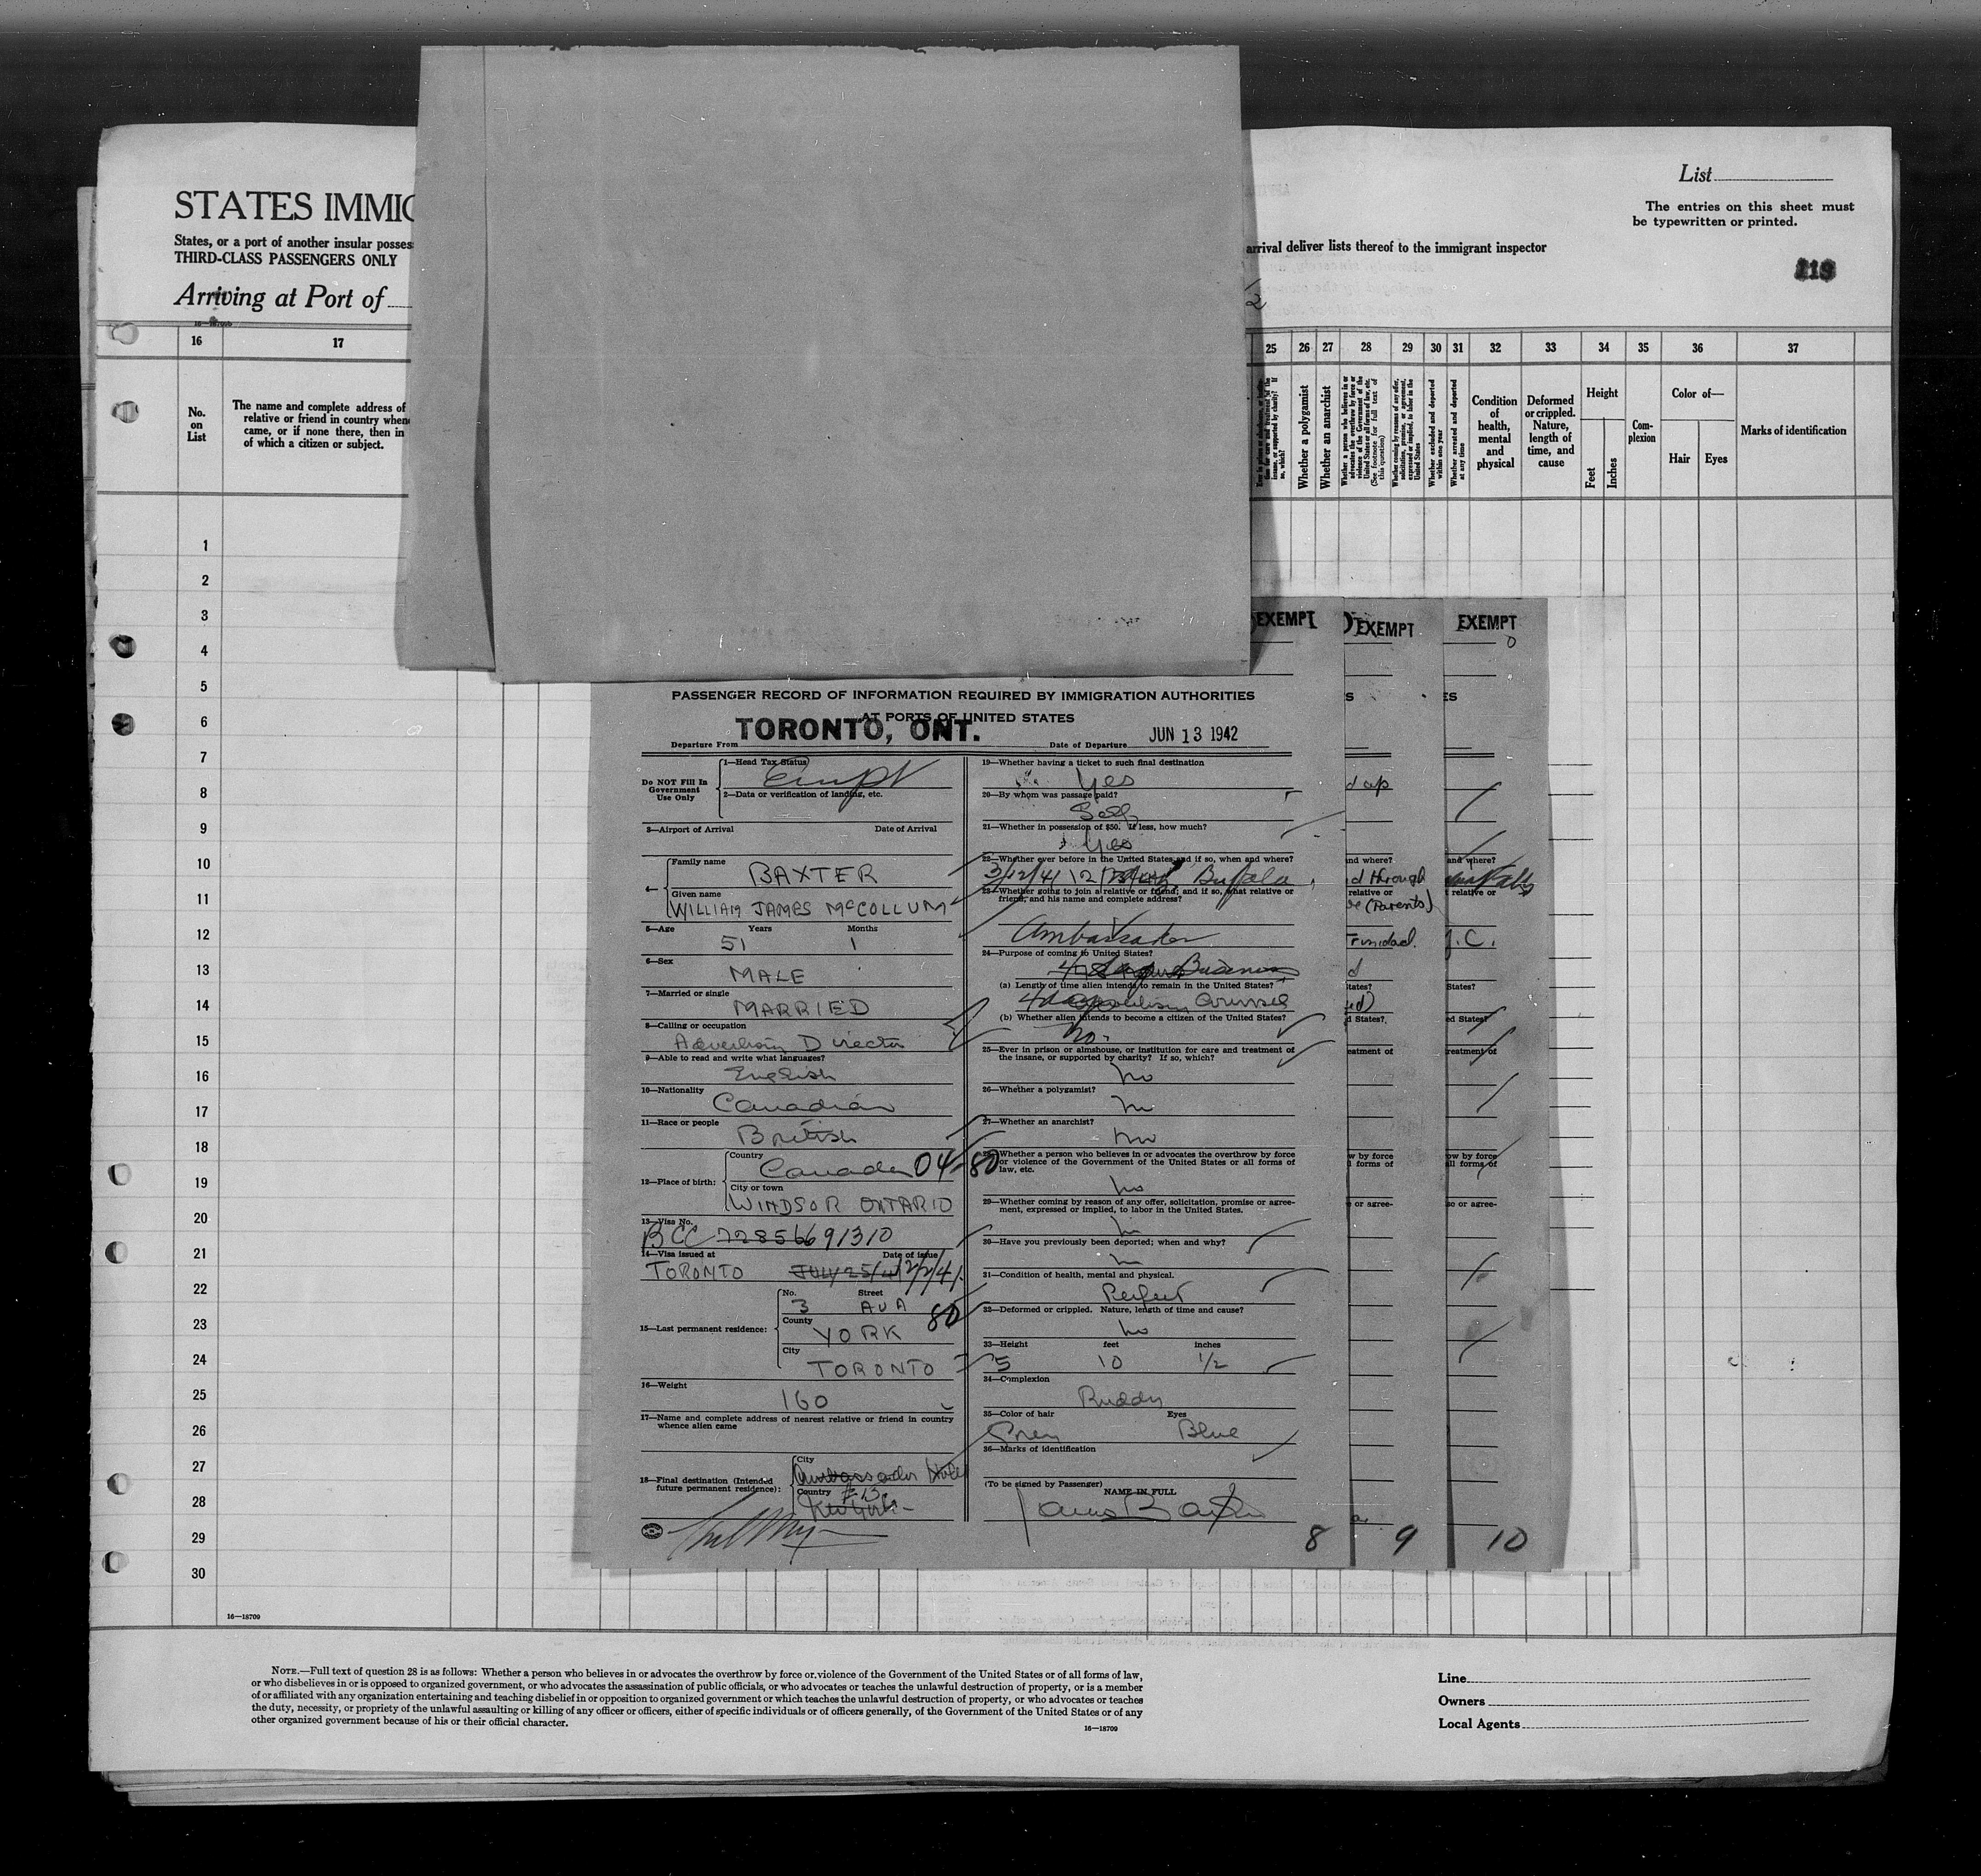 STATES IMMIG
States, or a port of another insular posses
THIRD-CLASS PASSENGERS ONLY
Arriving at Port of
List
The entries on this sheet must
be typewritten or printed.
arrival deliver lists thereof to the immigrant inspector
16 17 25 26 27 28 29 30 31 32 33 34 35 36 37
No.
on
List
The name and complete address of
relative or friend in country when
came, or if none there, then in
of which a citizen or subject.
Whether a polygamist
Whether an anarchist
Whether a person who believes in or advocates the overthrow by force or violence of the Government of the United States or all forms of law, etc. (See footnote for full text of this question)
Whether coming by reason of any offer, solicitation, promise, or agreement, expressed or implied, to labor in the United States
Whether excluded and deported within one year
Whether arrested and deported at any time
Condition
of
health,
mental
and
physical
Deformed
or crippled.
Nature,
length of
time, and
cause
Height
Feet
Inches
Com-
plexion
Color of—
Hair Eyes
Marks of identification
1
2
3
4
5
6
7
8
9
10
11
12
13
14
15
16
17
18
19
20
21
22
23
24
25
26
27
28
29
30
16—18709
EXEMPT EXEMPT EXEMPT
PASSENGER RECORD OF INFORMATION REQUIRED BY IMMIGRATION AUTHORITIES
AT PORTS OF UNITED STATES
TORONTO, ONT.
Departure From
Date of Departure JUN 13 1942
Do NOT Fill In
Government
Use Only
1—Head Tax Status
2—Data or verification of landing, etc.
3—Airport of Arrival Date of Arrival
4—
Family name
BAXTER
Given name
WILLIAM JAMES McCOLLUM
5—Age Years Months
51 1
6—Sex
MALE
7—Married or single
MARRIED
8—Calling or occupation
Advertising Director
9—Able to read and write what languages?
English
10—Nationality
Canadian
11—Race or people
British
12—Place of birth:
Country
Canada 04-80
City or town
WINDSOR ONTARIO
13—Visa No.
BCC 728566 91310
14—Visa issued at Date of issue
TORONTO JULY 25/41 12/2/41
15—Last permanent residence:
No. Street
3 AVA
County
YORK 80
City
TORONTO
16—Weight
160
17—Name and complete address of nearest relative or friend in country
whence alien came
18—Final destination (Intended
future permanent residence):
City
Ambassador Hotel
Country
New York
19—Whether having a ticket to such final destination
Yes
20—By whom was passage paid?
Self
21—Whether in possession of $50. If less, how much?
Yes
22—Whether ever before in the United States and if so, when and where?
Buffalo
23—Whether going to join a relative or friend; and if so, what relative or
friend, and his name and complete address?
Ambassador
24—Purpose of coming to United States?
Business
(a) Length of time alien intends to remain in the United States?
Counsel
(b) Whether alien intends to become a citizen of the United States?
No.
25—Ever in prison or almshouse, or institution for care and treatment of
the insane, or supported by charity? If so, which?
No
26—Whether a polygamist?
No
27—Whether an anarchist?
No
28—Whether a person who believes in or advocates the overthrow by force
or violence of the Government of the United States or all forms of
law, etc.
No
29—Whether coming by reason of any offer, solicitation, promise or agree-
ment, expressed or implied, to labor in the United States.
No
30—Have you previously been deported; when and why?
No
31—Condition of health, mental and physical.
Perfect
32—Deformed or crippled. Nature, length of time and cause?
No
33—Height feet inches
5 10 1/2
34—Complexion
Ruddy
35—Color of hair Eyes
Grey Blue
36—Marks of identification
(To be signed by Passenger)
NAME IN FULL
James Baxter
8 9 10
and where?
d through
relative or
(Parents)
Trinidad.
States?
d States?
eatment of
w by force
l forms of
e or agree-
and where?
relative or
J.C.
States?
ed States?
reatment of
ow by force
all forms of
so or agree-
NOTE.—Full text of question 28 is as follows: Whether a person who believes in or advocates the overthrow by force or violence of the Government of the United States or of all forms of law,
or who disbelieves in or is opposed to organized government, or who advocates the assassination of public officials, or who advocates or teaches the unlawful destruction of property, or is a member
of or affiliated with any organization entertaining and teaching disbelief in or opposition to organized government or which teaches the unlawful destruction of property, or who advocates or teaches
the duty, necessity, or propriety of the unlawful assaulting or killing of any officer or officers, either of specific individuals or of officers generally, of the Government of the United States or of any
other organized government because of his or their official character.
16—18709
Line
Owners
Local Agents